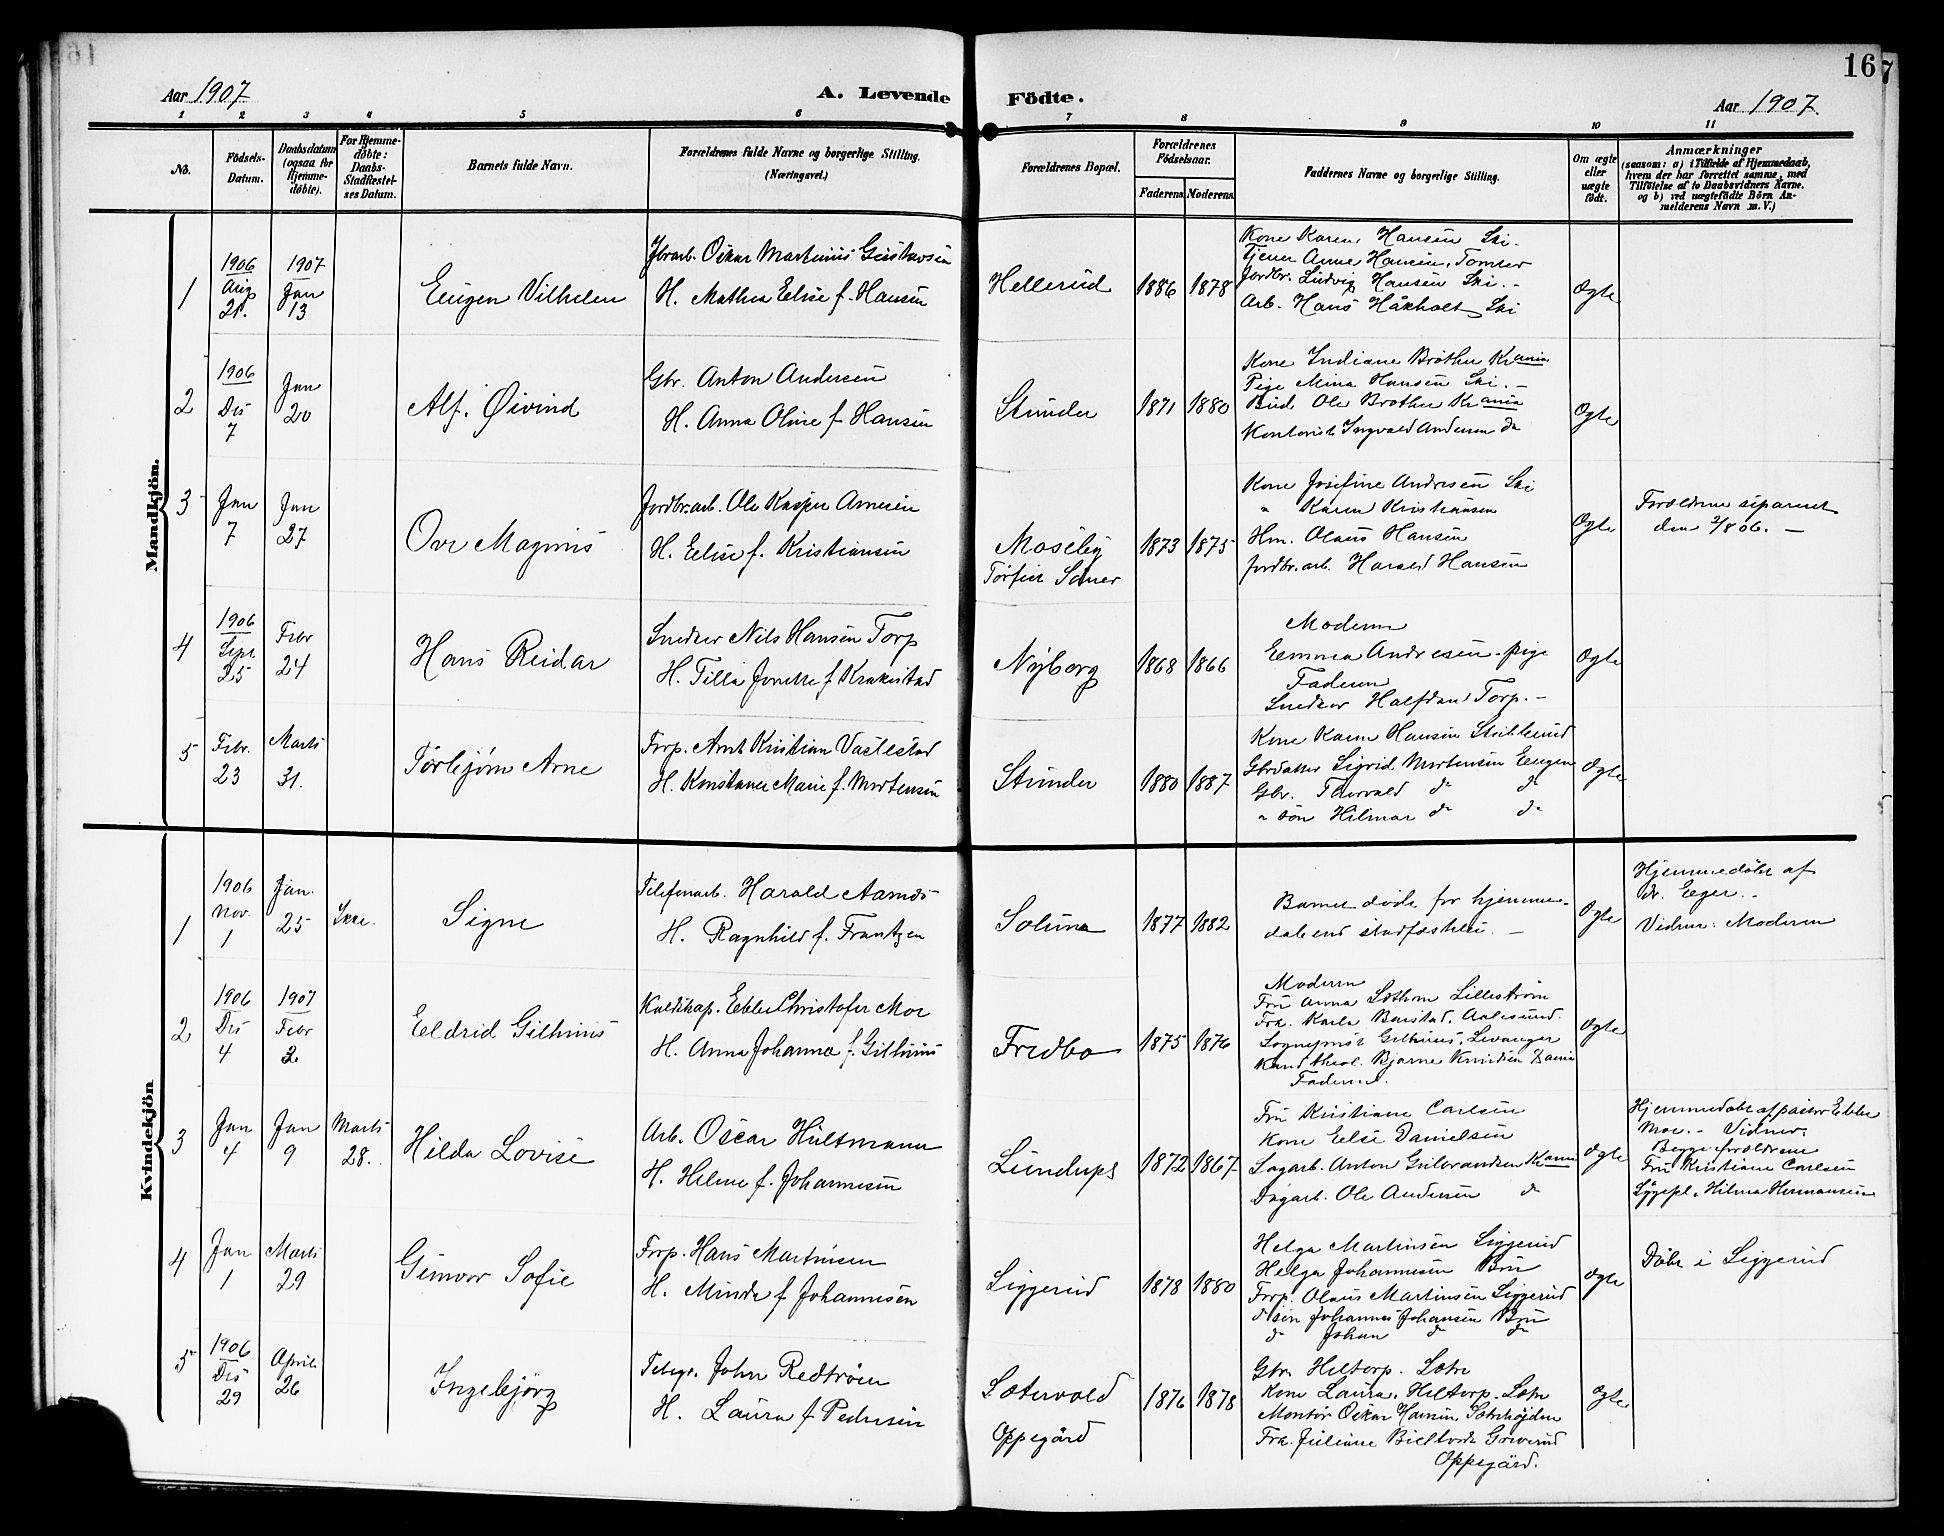 Aar 1907
A. Levende Födte.
Aar 1907.
16
7
1 2 3 4 5 6 7 8 9 10 11
No.
Födsels-Datum.
Daabsdatum (ogsaa for Hjemme-döbte).
For Hjemme-döbte: Daabs-Stadfæstel-ses Datum.
Barnets fulde Navn.
Forældrenes fulde Navne og borgerlige Stilling.
(Næringsvei.)
Forældrenes Bopæl.
Forældrenes Födselsaar.
Faderens. Moderens.
Faddernes Navne og borgerlige Stilling.
Om ægte eller uægte födt.
Anmærkninger
(saasom: a) i Tilfælde af Hjemmedaab,
hvem der har forrettet samme, med
Tilföielse af to Daabsvidners Navne.
og b) ved uægtefödte Börn An-
melderens Navn m. V.)
Mandkjön.
1
1906 Aug 21.
1907 Jan 13
Eugen Vilhelm
Jbrarb. Oskar Martinius Gustavsen
H. Mathea Elise f. Hansen
Hellerud
1886 1878
Kone Karen Hansen Ski.
Tjener Anne Hansen, Tomter
Jordbr. Ludvig Hansen Ski.
Arb. Hans Håkholt Ski
Ægte
2
1906 Des 7
Jan 20
Alf. Øivind
Gbr. Anton Andersen
H. Anna Oline f Hansen
Stunder
1871 1880
Kone Indiane Bråthen Krania
Pige Mina Hansen Ski.
Bud Ole Bråthen Krania
Kontorist Ingvald Andersen do
Ægte
3
Jan 7
Jan 27
Ove Magnus
Jordbr.arb. Ole Kasper Arnesen
H. Elise f. Kristiansen
Moseby
Torfin Saner
1873 1875
Kone Josefine Andresen Ski
" Karen Kristiansen
Hm. Olaus Hansen
Jordbr.arb. Harald Hansen
Ægte
Forældrene separeret
den 2/8 06. —
4
1906 Sept 25
Febr 24
Hans Reidar
Snedker Nils Hansen Torp
H. Tilla Jonette f Krakestad
Nyborg
1868 1866
Moderen
Emma Andresen, pige
Faderen
Snedker Halfdan Torp. —
Ægte
5
Febr. 23
Marts 31.
Torbjørn Arne
Forp. Arnt Kristian Vastestad
H. Konstance Marie f. Mortensen
Stunder
1880 1887
Kone Karen Hansen
Gbrdatter Sigrid Mortensen Eugen
Gbr. Thorvald do do
" søn Hilmar do do
Ægte
Kvindekjön
1
1906 Nov. 1
Jan. 25
Ikke.
Signe
Telefonarb. Harald Aamodt
H. Ragnhild f. Frantzen
Soluna
1877 1882
Barnet døde før hjemme-
dåben stadfæstedes. —
Ægte
Hjemmedøbt af
dr. Eger. —
Vidne: Moderen
2
1906 Des 4
1907 Febr 2
Eldrid Gilhuus
Kaldskap. Ebbe Christofer Moe
H. Anna Johanna f. Gilhuus
Fredbo
1875 1876
Moderen
Fru Anna Sæthren Lillestrøm
Frk. Karla Barstad, Aalesund.
Sogneprest Gilhuus, Levanger
Kand theol. Bjarne Knudsen Krania
Faderen.
Ægte
3
Jan 4
Jan 9
Marts 28.
Hilda Lovise
Arb. Oscar Hultmann
H. Helene f. Johannesen
Lundeups
1872 1867
Fru Kristiane Carlsen
Kone Else Danielsen
Sagarb. Anton Gulbrandsen Krania
Dagarb. Ole Andersen do
Ægte
Hjemmedøbt af pastor Ebbe
Moe. — Vidner:
Begge forældrene
Fru Kristiane Carlsen
Sygepl. Hilma Hermansen
4
Jan 1
Marts 29
Gunvor Sofie
Forp. Hans Martinsen
H. Minda f Johannesen
Siggerud
1878 1880
Helga Martinsen Siggerud
Helga Johannesen Bru
Forp. Olaus Martinsen Siggerud
d søn Johannes Johansen Bru
do Johan do do
Ægte
Døbt i Siggerud
5
1906 Des 29
April 26
Ingebjørg
Telegr. John Redtrøen
H. Laura f Pedersen
Sætervold
Oppegård
1876 1878
Gbr. Heltorp. Sætre
Kone Laura Heltorp. Sætre
Montør Oskar Hansen Sætrehøjden
Frk. Juliane Grverud
Oppegård.
Ægte